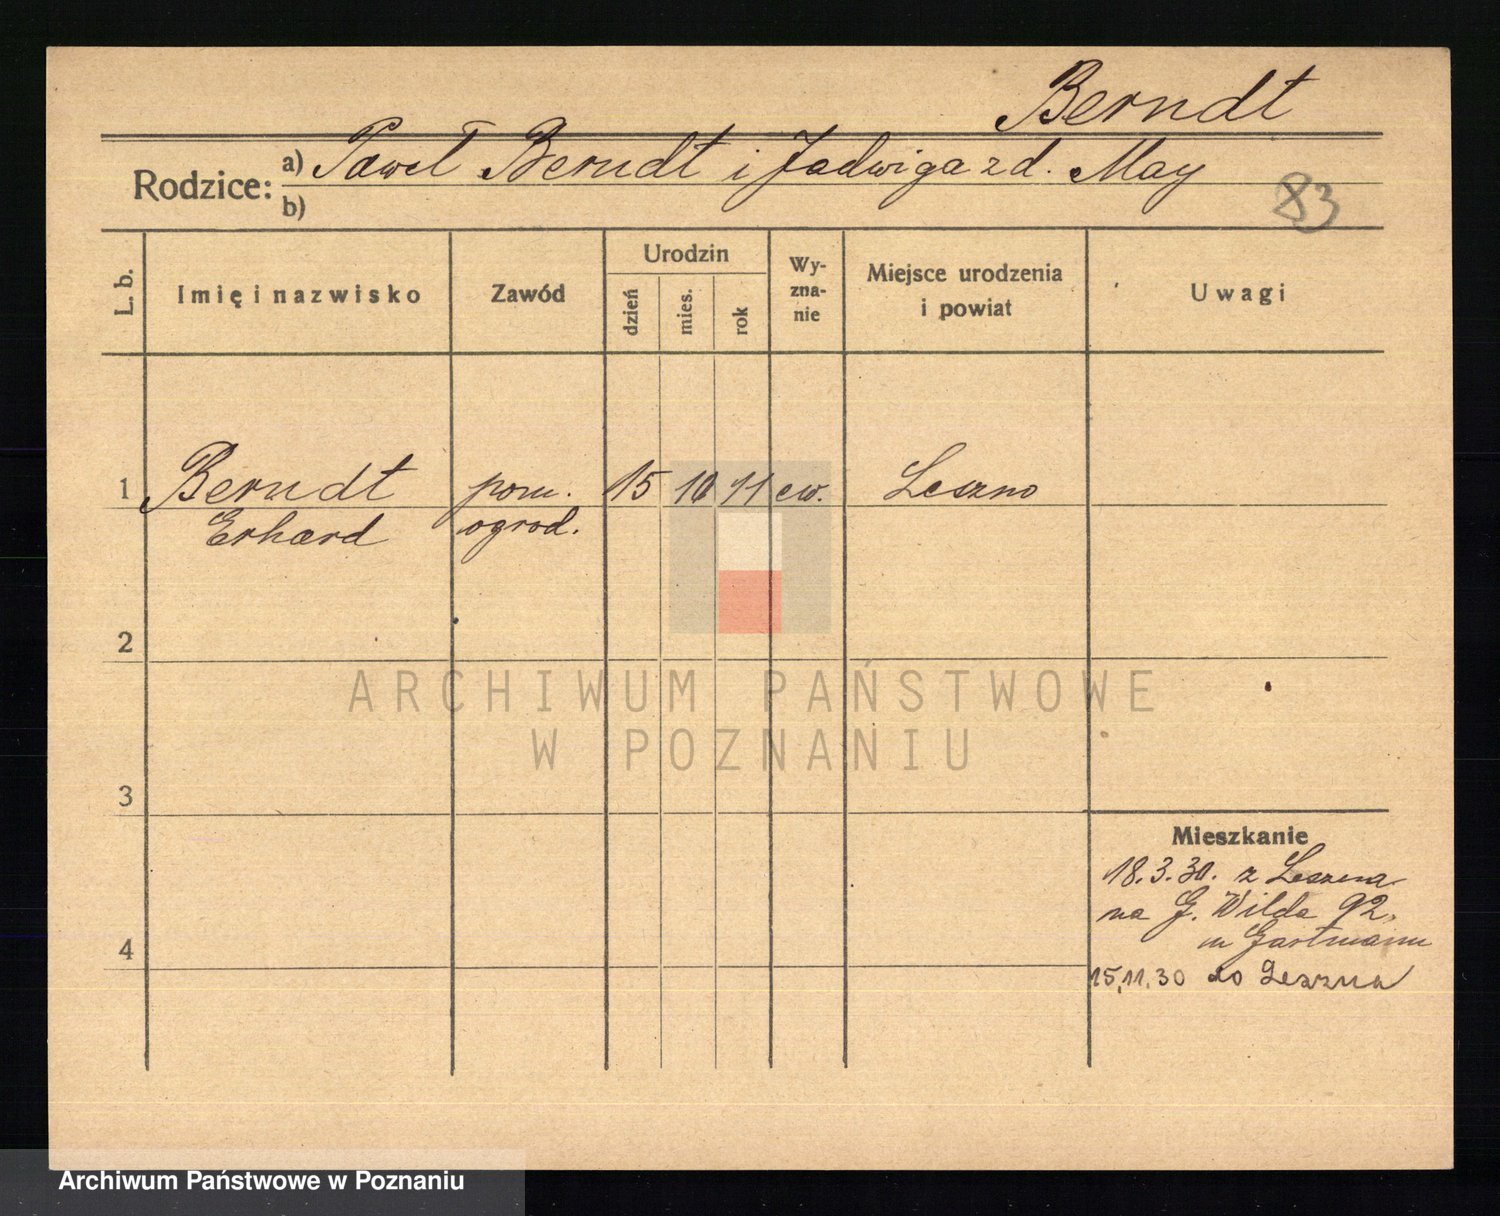 Berndt
Rodzice: a) Paweł Berndt i Jadwiga z d. May
b)
83
L. b. Imię i nazwisko Zawód Urodzin dzień mies. rok Wy-zna-nie Miejsce urodzenia i powiat Uwagi
1 Berndt pom. 15 10 11 ew. Leszno
Erhard ogrod.
2
ARCHIWUM PAŃSTWOWE
W POZNANIU
3
Mieszkanie
18.3.30. z Leszna
na G. Wilda 92.
u Gartmann
4
15.11.30 do Leszna
Archiwum Państwowe w Poznaniu